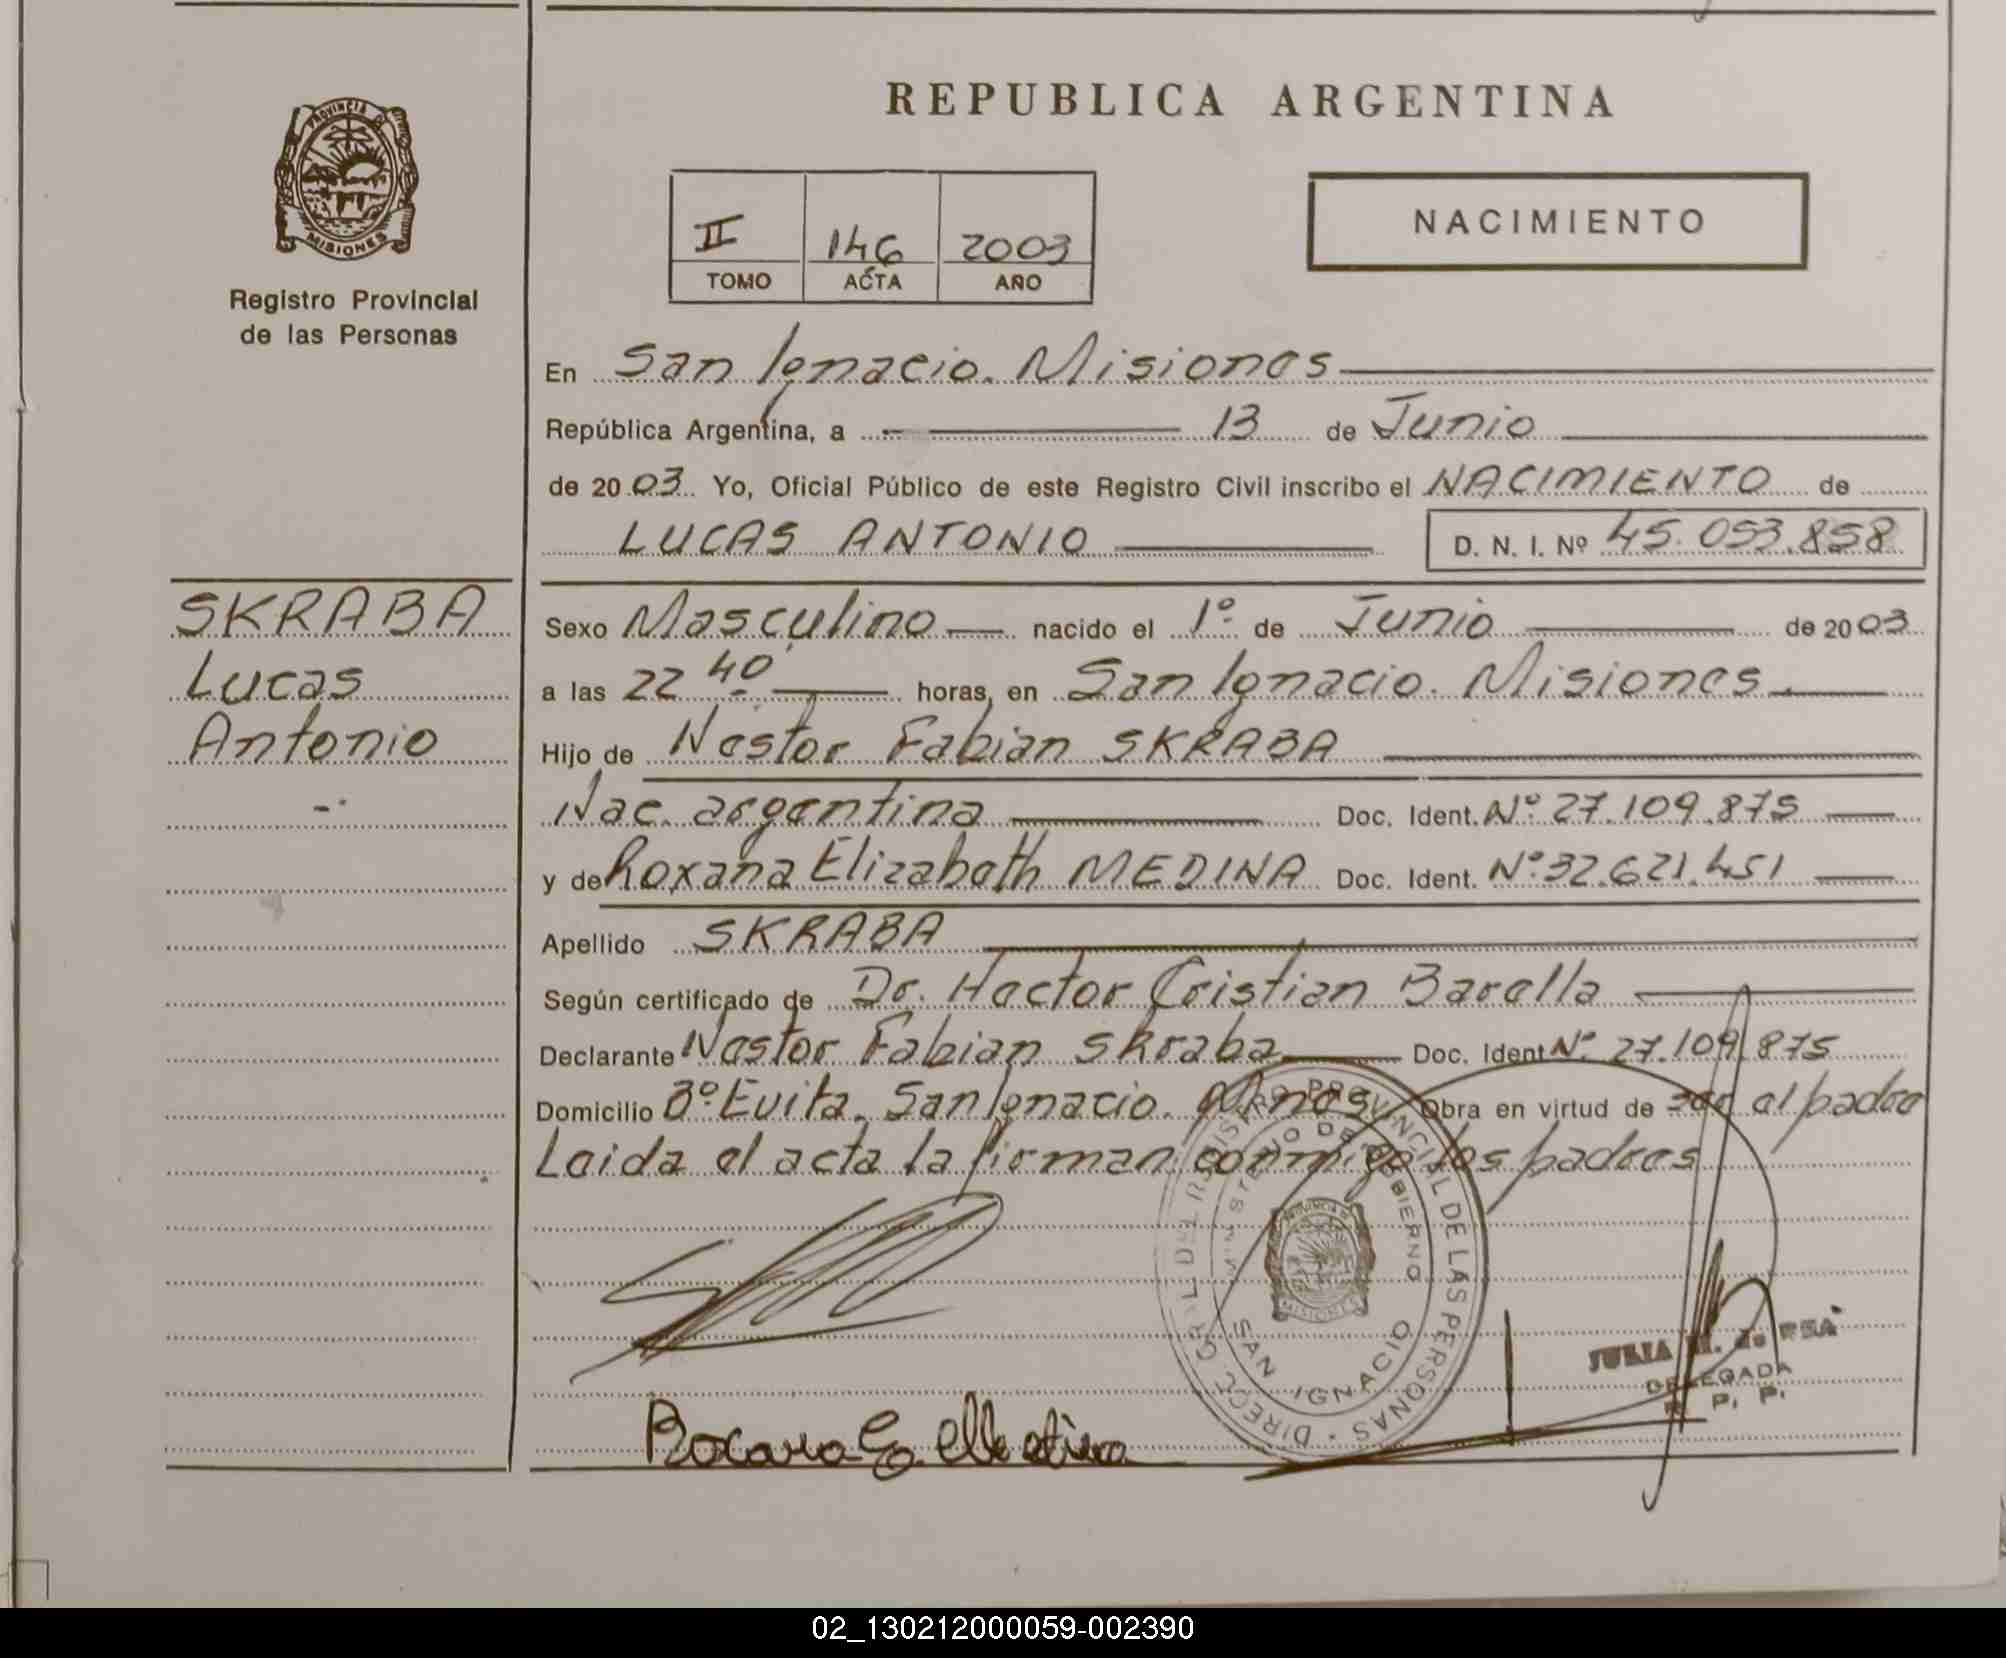 REPUBLICA ARGENTINA
PROVINCIA DE
MISIONES
Registro Provincial
de las Personas
II 146 2003
TOMO ACTA AÑO
NACIMIENTO
En San Ignacio. Misiones
República Argentina, a 13 de Junio
de 2003 Yo, Oficial Público de este Registro Civil inscribo el NACIMIENTO de
LUCAS ANTONIO D. N. I. Nº 45.053.858
SKRABA
Lucas
Antonio
Sexo Masculino nacido el 1º de Junio de 2003
a las 22 40 horas, en San Ignacio. Misiones.
Hijo de Nestor Fabian SKRABA
Nac. argentina Doc. Ident. Nº 27.109.875
y de Roxana Elizabeth MEDINA Doc. Ident. Nº 32.621.451
Apellido SKRABA
Según certificado de Dr. Hector Cristian Barella
Declarante Nestor Fabian Skraba Doc. Ident Nº 27.109.875
Domicilio Bº Evita. San Ignacio. Mnes Obra en virtud de ser el padre
Leida el acta la firman conmigo los padres
DIRECC. GRAL. DEL REGISTRO PROVINCIAL DE LAS PERSONAS
MINISTERIO DE GOBIERNO
SAN IGNACIO
MISIONES
Roxana E. Medina
JULIA
DELEGADA
R. P. P.
02_130212000059-002390